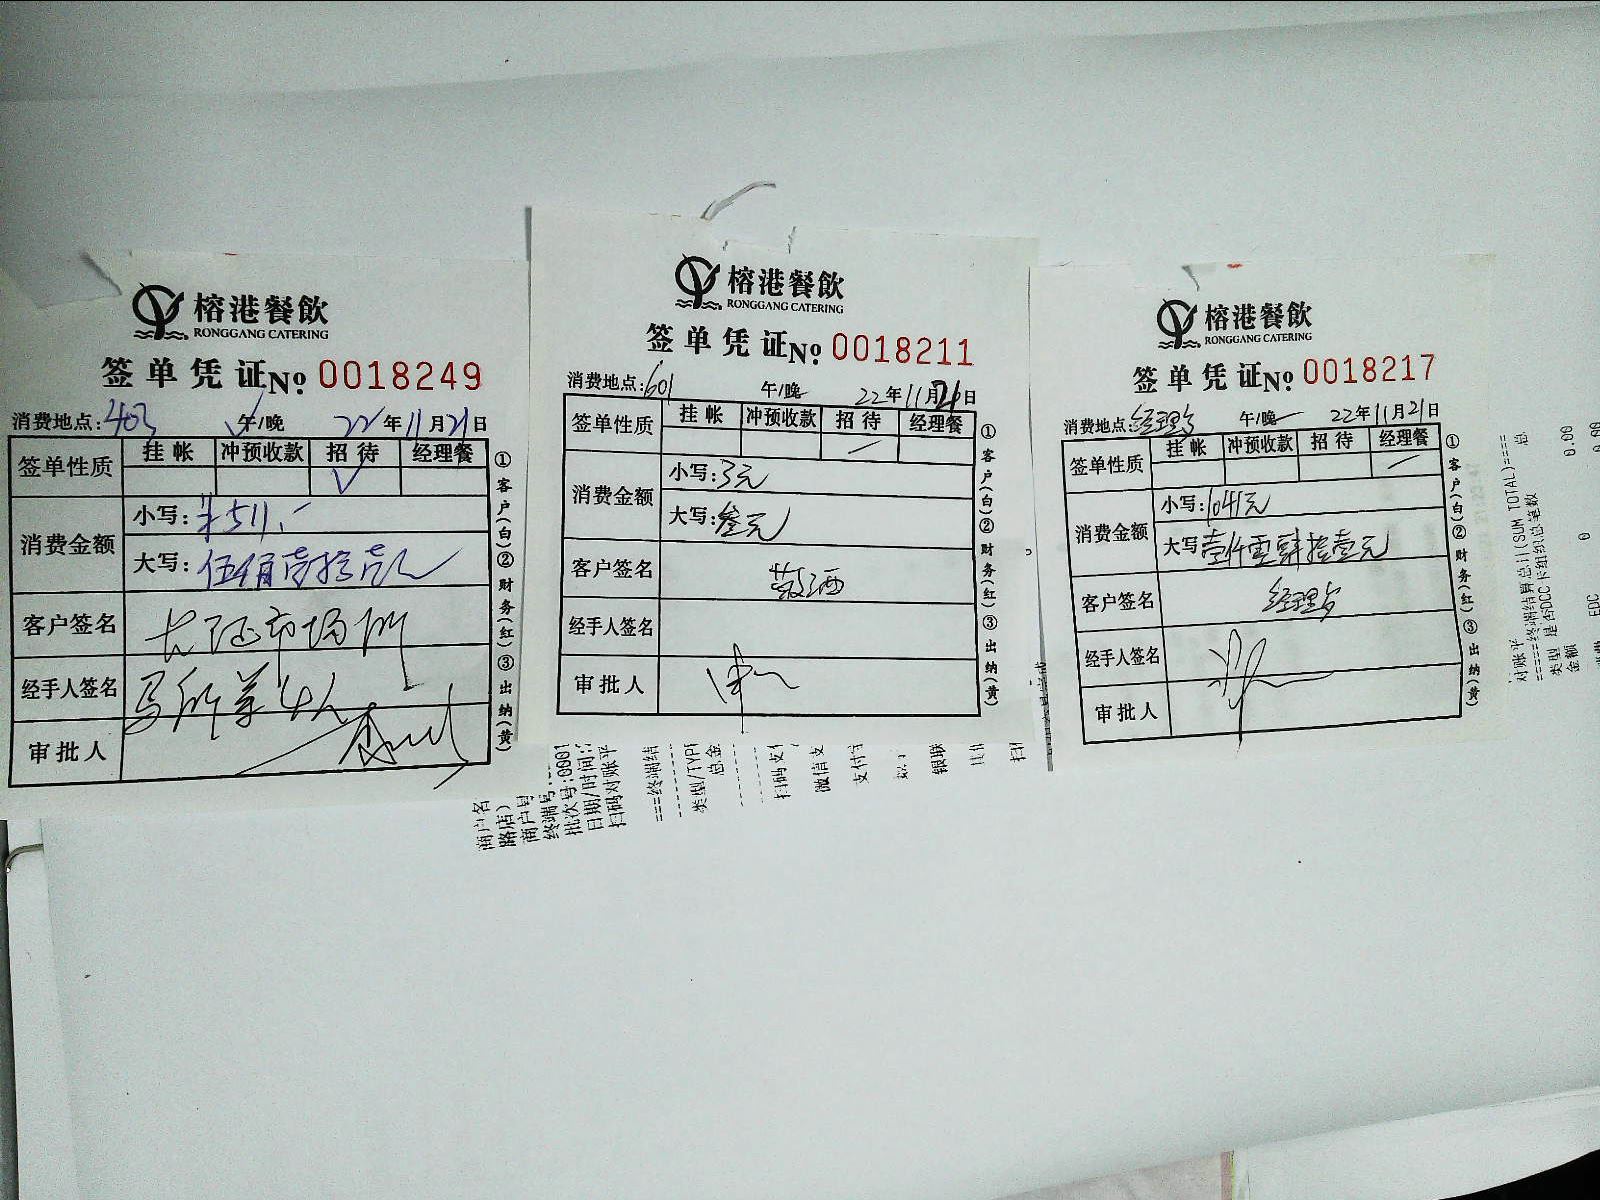 榕港餐飲
RONGGANG CATERING
签单凭证 No 0018249
消费地点:403 午/晚 22年11月21日
签单性质 挂帐 冲预收款 招待 经理餐
√
消费金额 小写:¥511.-
大写:伍佰壹拾壹元
客户签名 长征市场所
经手人签名
审批人
①客户(白)②财务(红)③出纳(黄)
榕港餐飲
RONGGANG CATERING
签单凭证 No 0018211
消费地点:601 午/晚 22年11月21日
签单性质 挂帐 冲预收款 招待 经理餐
消费金额 小写:3元
大写:叁元
客户签名 散酒
经手人签名
审批人
①客户(白)②财务(红)③出纳(黄)
榕港餐飲
RONGGANG CATERING
签单凭证 No 0018217
消费地点:经理 午/晚 22年11月21日
签单性质 挂帐 冲预收款 招待 经理餐
消费金额 小写:1041元
大写:壹仟零肆拾壹元
客户签名 经理
经手人签名
审批人
①客户(白)②财务(红)③出纳(黄)
商户名
路店)
商户号
终端号:
批次号:0001
日期/时间:
扫码对账平
===终端结
类型/TYPE
总金
扫码支付
微信支
支付
银联
对账平
=====终端结算总计(SUM TOTAL)====
类型 是否DCC卡组织总笔数 总
金额
0 0.00
EDC